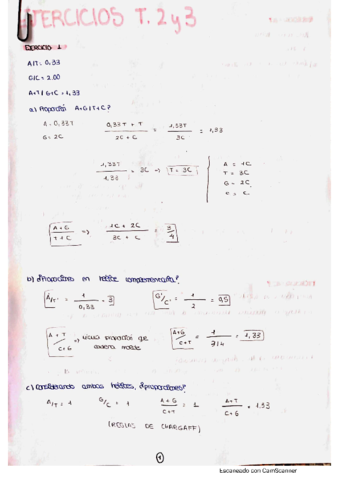 EJERCICIOS T. 2 y 3
EJERCICIO 1
A/T = 0,33
G/C = 2.00
A+T / G+C = 1,33
a) Proporción A+G / T+C?
A = 0,33T
G = 2C
0,33T + T / 2C + C = 1,33T / 3C = 1,33
1,33T / 1,33 = 3C => T = 3C
A = 1C
T = 3C
G = 2C
C = C
A+G / T+C => 1C + 2C / 3C + C = 3 / 4
b) ¿Proporciones en hélice complementaria?
A'/T' = 1 / 0,33 = 3
G'/C' = 1 / 2 = 0,5
A+T / C+G => misma proporción que cadena molde
A+G / C+T = 1 / 3/4 = 1,33
c) Considerando ambas hélices, ¿proporciones?
A/T = 1
G/C = 1
A+G / C+T = 1
A+T / C+G = 1,33
(REGLAS DE CHARGAFF)
1
Escaneado con CamScanner